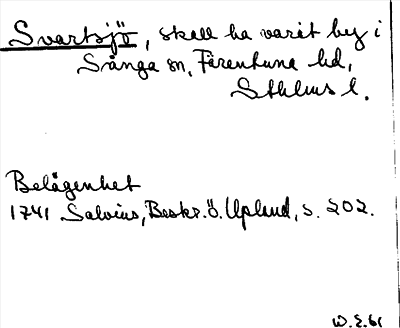 Svartsjö, skall ha varit by i
Sånga sn, Färentuna hd,
Sthlms l.
Belägenhet
1741 Salvius, Beskr. ö. Upland, s. 202.
W.E. 61